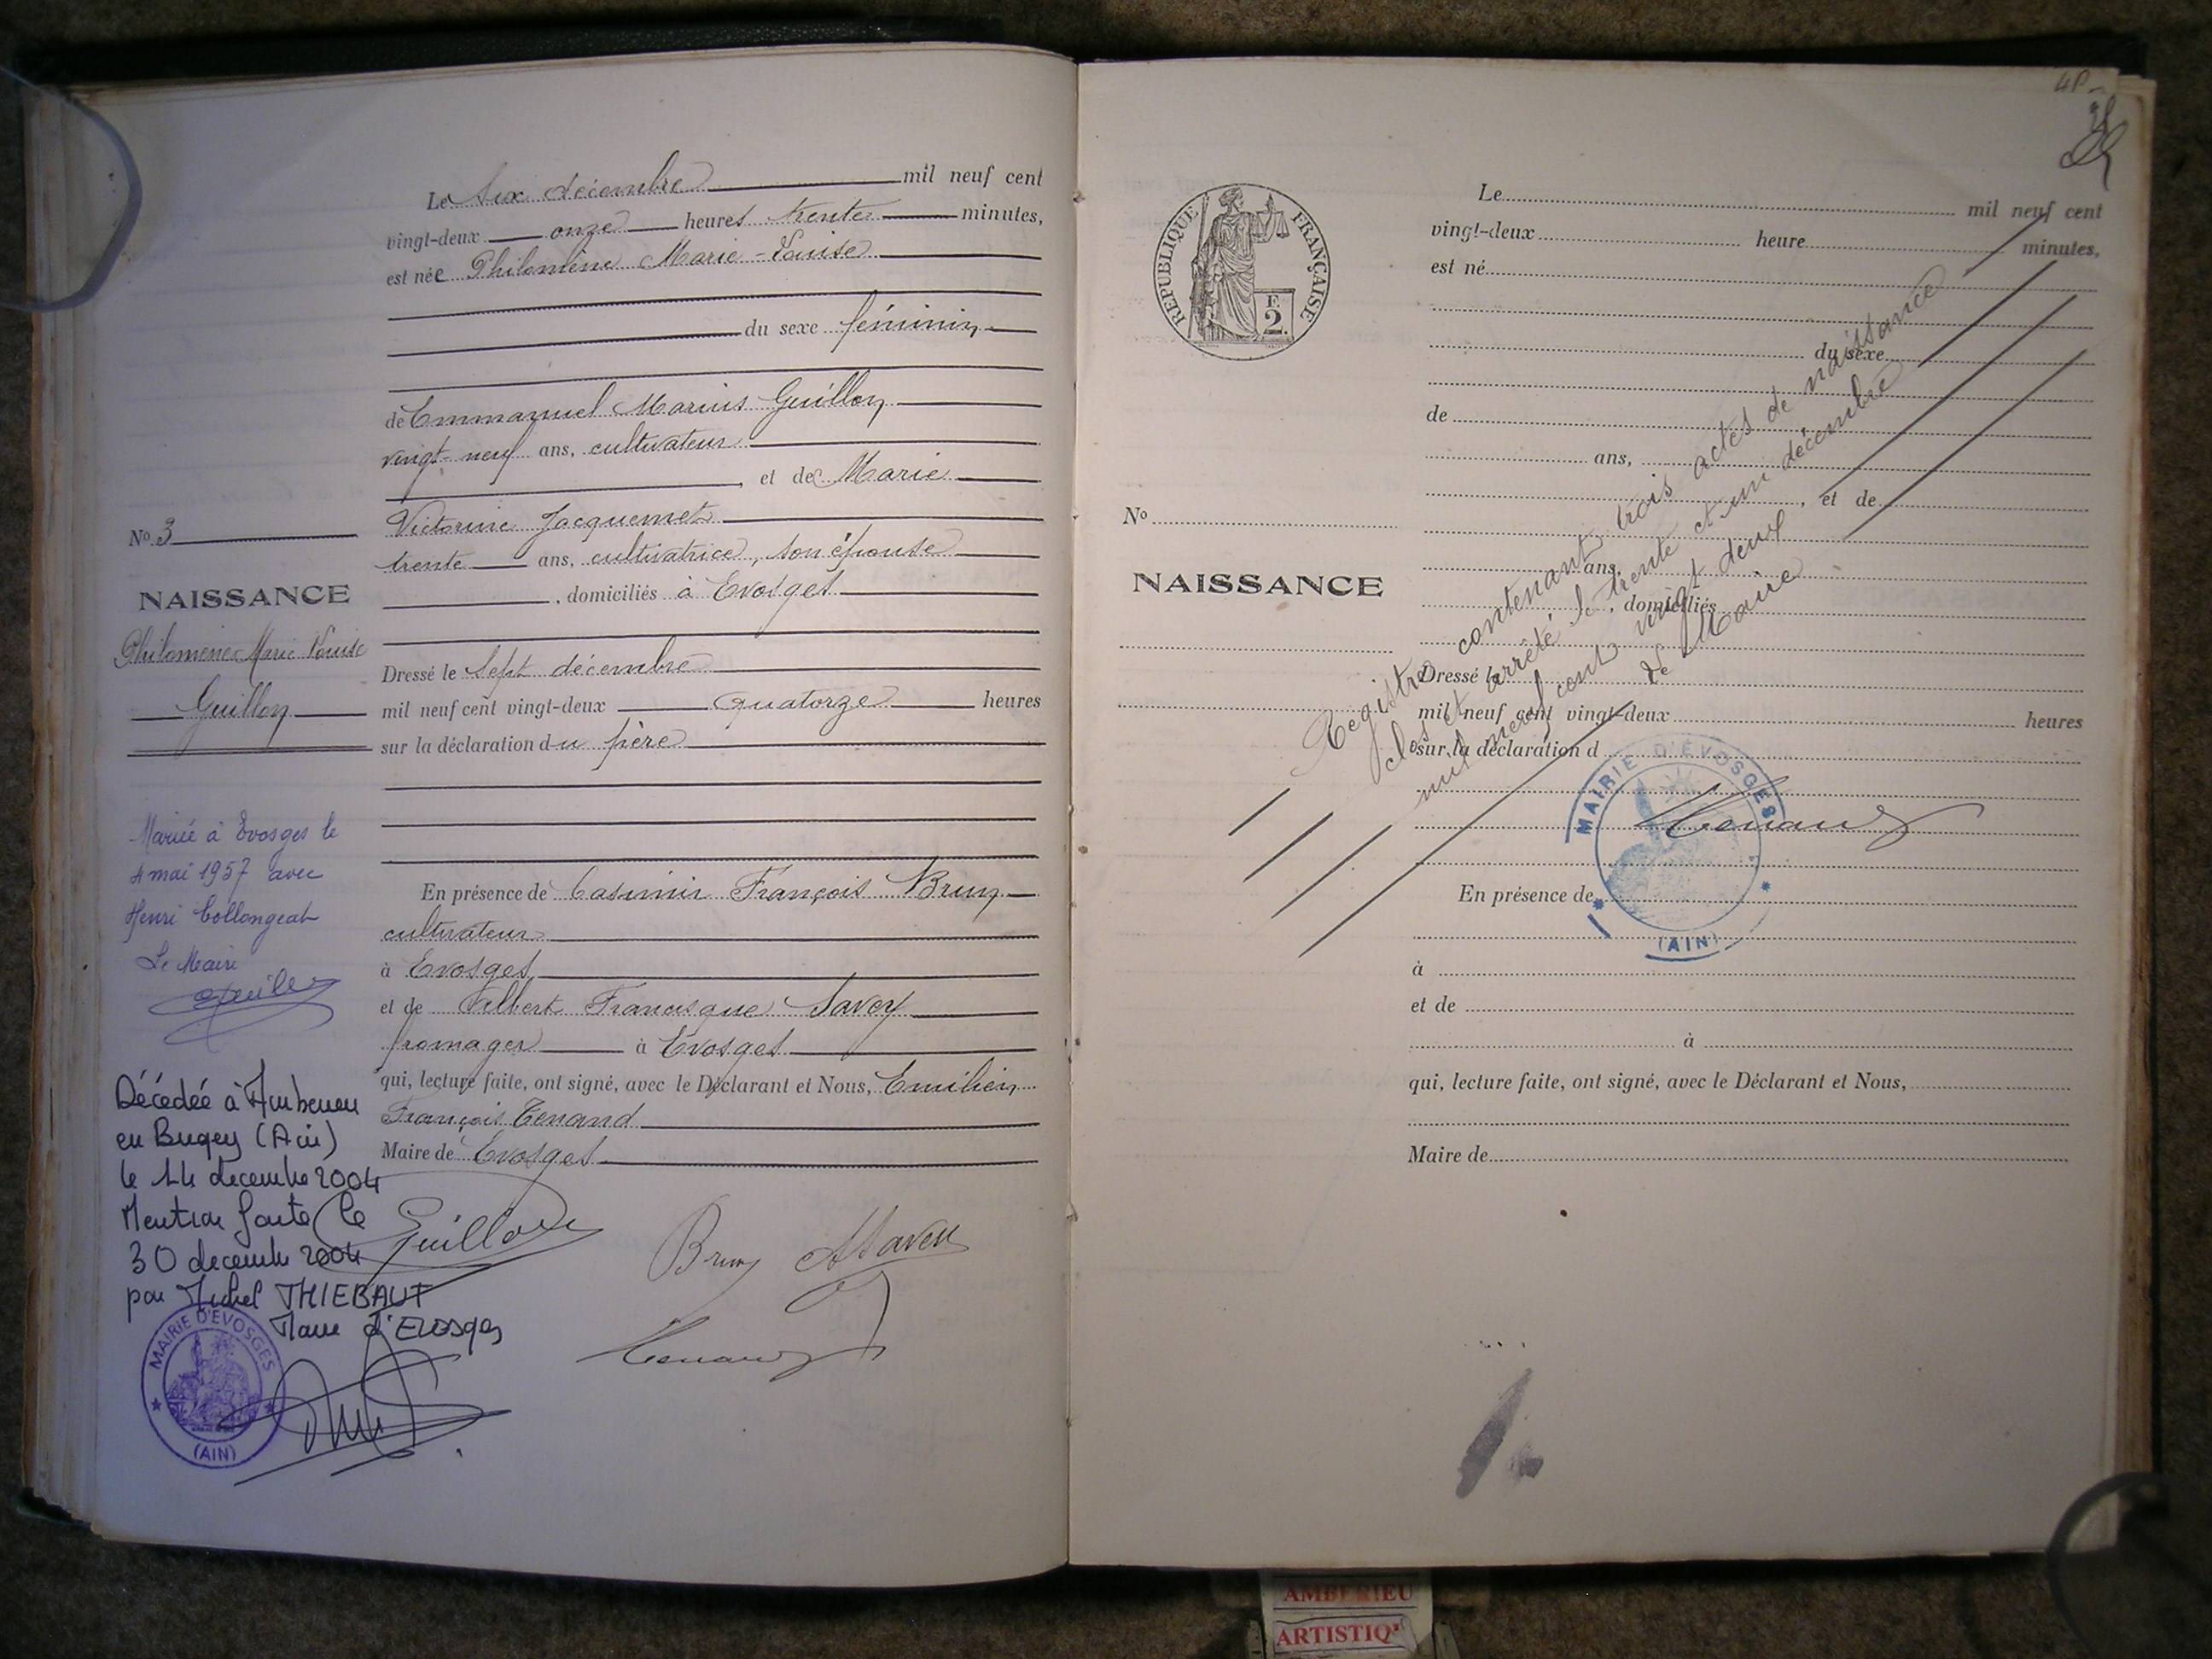 Le Six décembre mil neuf cent
vingt-deux onze heures trente minutes,
est née Philomène Marie-Louise
du sexe féminin
de Emmanuel Marius Guillon
vingt-neuf ans, cultivateur
et de Marie
Victorine Jacquemet
trente ans, cultivatrice, son épouse
, domiciliés à Evosges
Dressé le sept décembre
mil neuf cent vingt-deux quatorze heures
sur la déclaration du père
En présence de Casimir François Brun
cultivateur
à Evosges
et de Albert Francisque Savey
fromager à Evosges
qui, lecture faite, ont signé, avec le Déclarant et Nous, Emilien
François Tenand
Maire de Evosges
Guillon
Brun
ASavey
Tenand
No 3
NAISSANCE
Philomène Marie Louise
Guillon
Mariée à Evosges le
4 mai 1957 avec
Henri Collongeat
Le Maire
Décédée à Ambérieu
en Bugey (Ain)
le 14 decembre 2004
Mention faite le
30 decembre 2004
par Michel THIEBAUT
Maire d'Evosges
MAIRIE D'EVOSGES
(AIN)
RÉPUBLIQUE FRANÇAISE
F.
2
No
NAISSANCE
Le mil neuf cent
vingt-deux heure minutes,
est né
du sexe
de
ans,
, et de
ans,
, domiciliés
Dressé le
mil neuf cent vingt-deux heures
sur la déclaration d
En présence de
à
et de
à
qui, lecture faite, ont signé, avec le Déclarant et Nous,
Maire de
Registre contenant trois actes de naissance
clos et arrêté le trente et un décembre
mil neuf cent vingt deux
Le Maire
Tenand
MAIRIE D'EVOSGES
(AIN)
AMBERIEU
ARTISTIQ